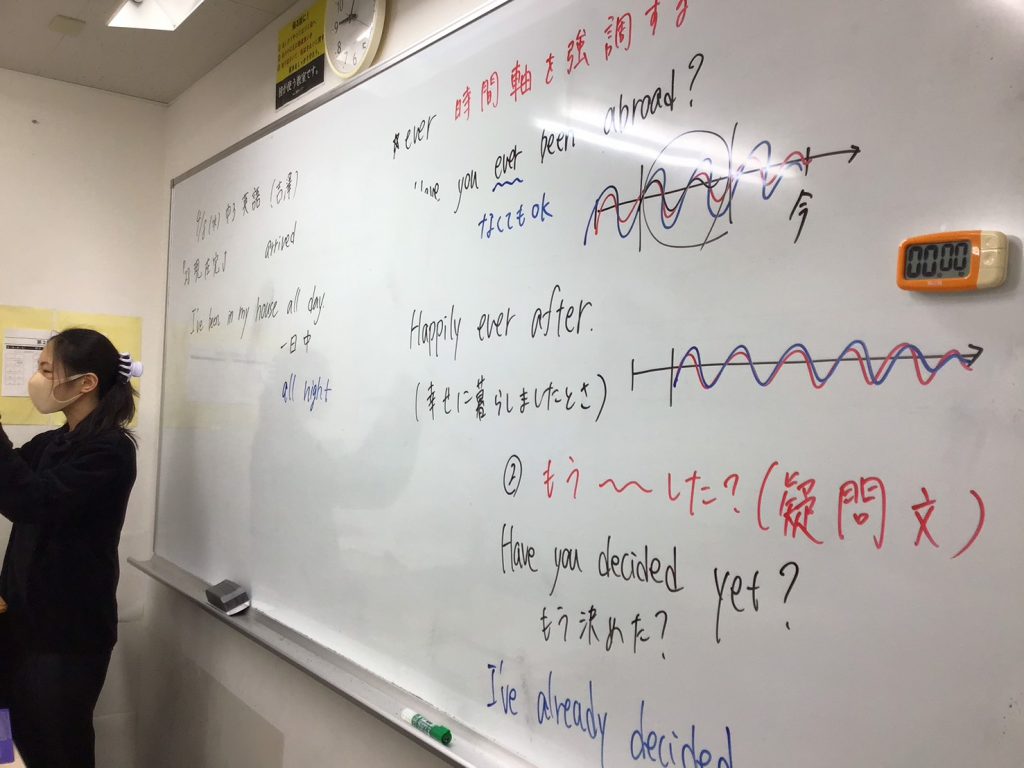 英語
arrived
I've been in my house all day
一日中
all night
*ever 時間軸を強調する
you ever been abroad?
なくてもOK
今
Happily ever after.
(幸せに暮らしましたとさ)
② もう 〜〜した?(疑問文)
Have you decided yet?
もう決めた?
I've already decided
00:00